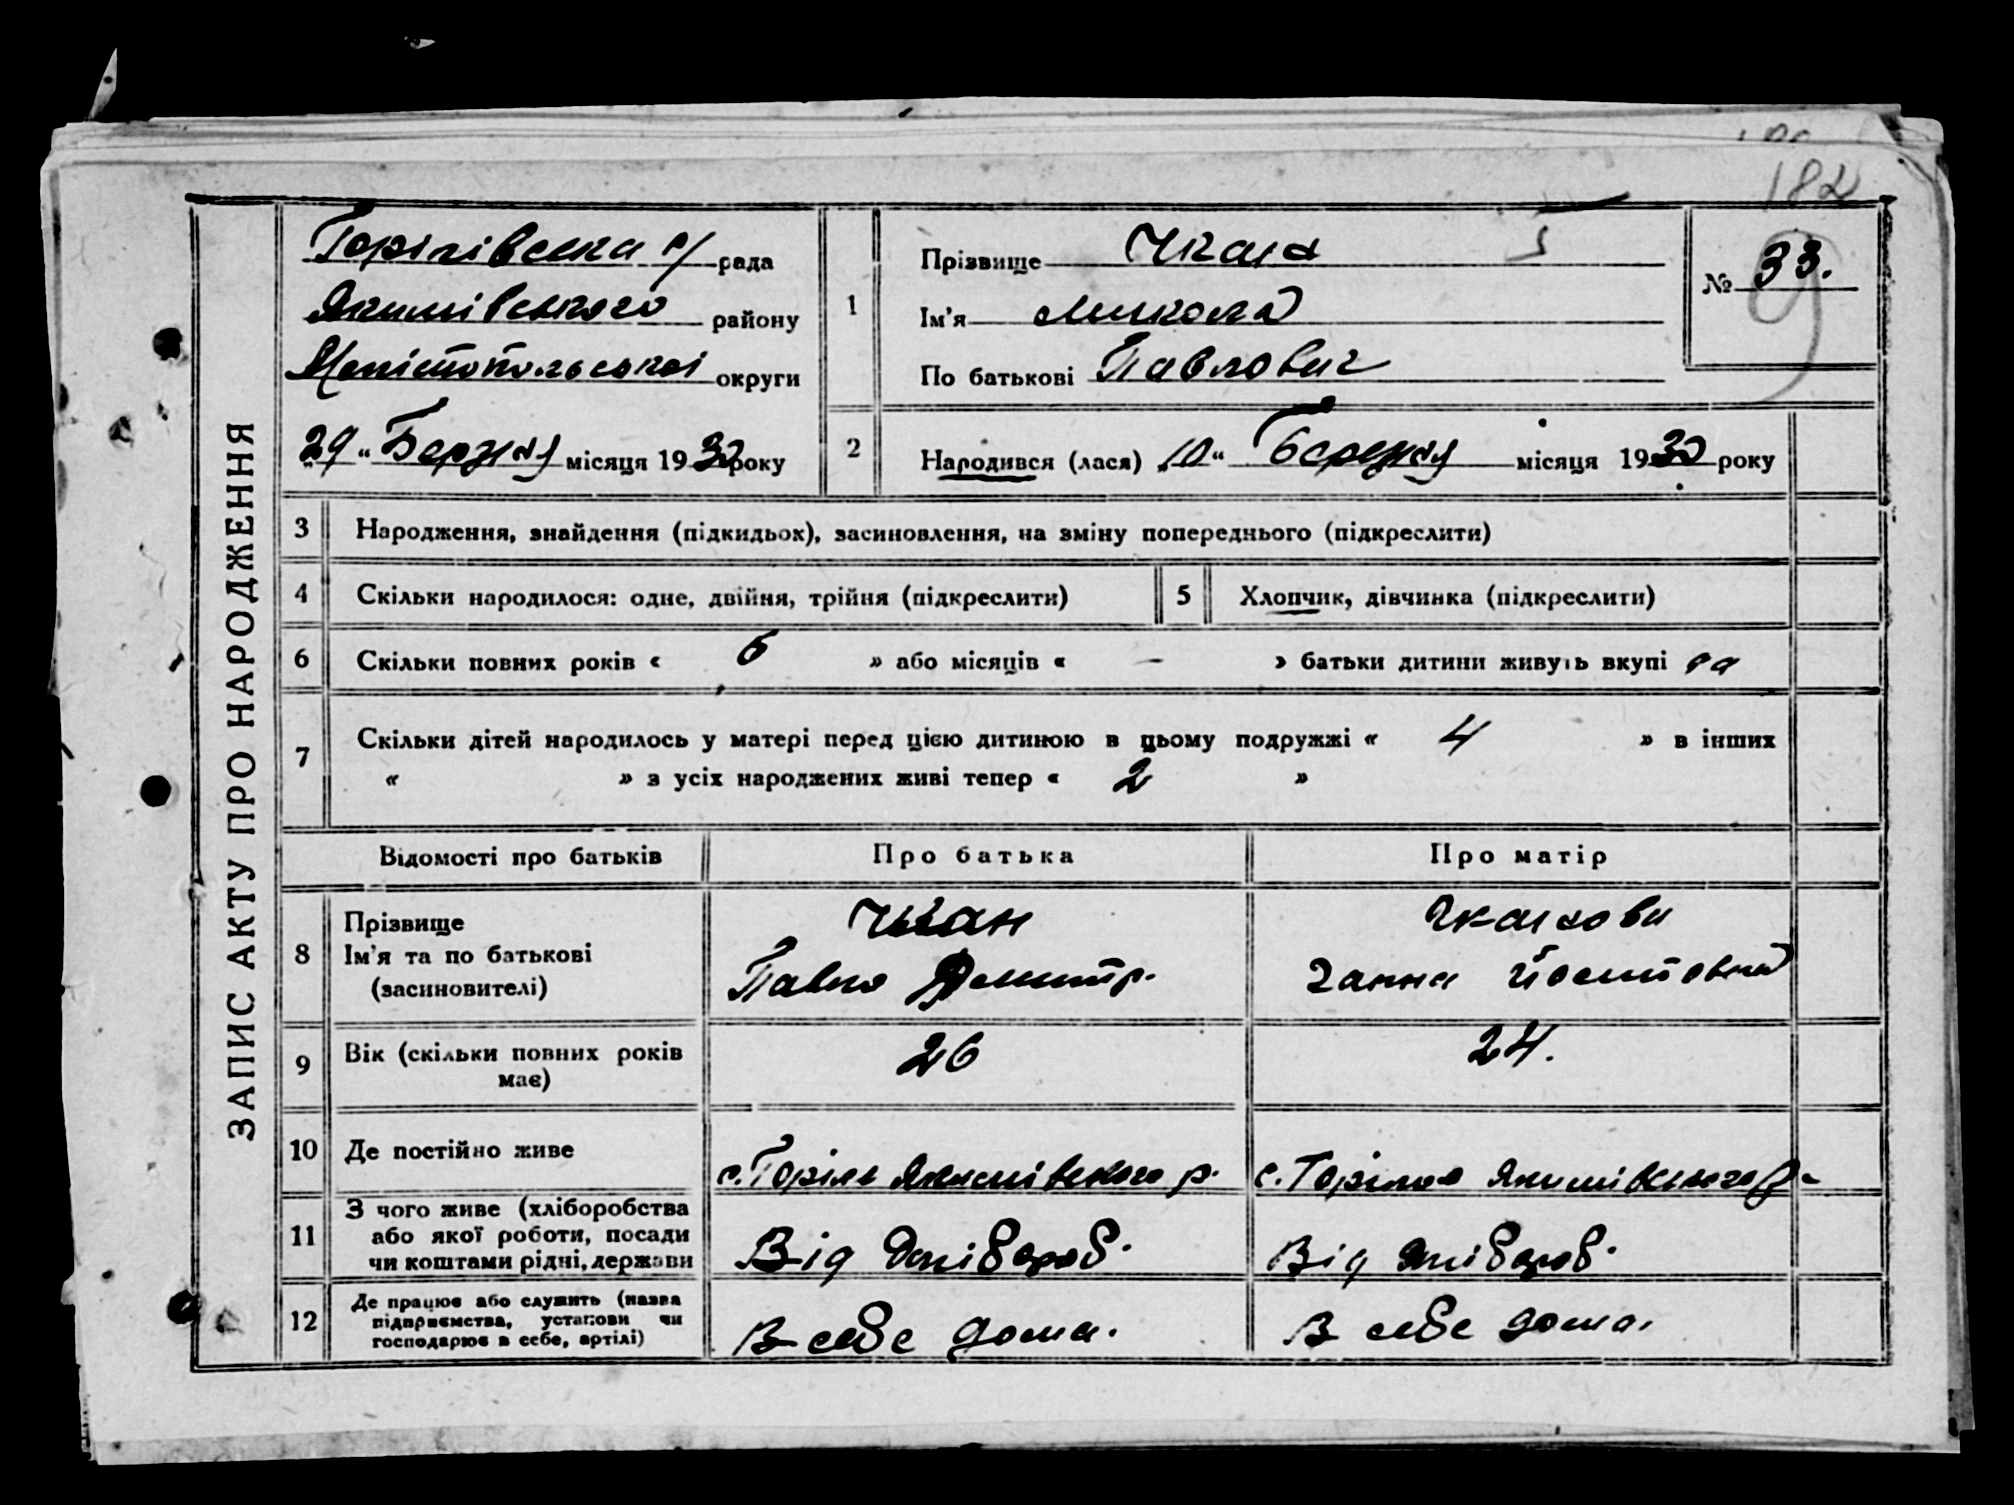 182
ЗАПИС АКТУ ПРО НАРОДЖЕННЯ
Горілівська с/ рада
Якимівського району
Мелітопольської округи
„29“ Березня місяця 1930 року
1
Прізвище Чкан
Ім'я Микола
По батькові Павлович
№ 33.
2
Народився (лася) „10“ Березня місяця 1930 року
3 Народження, знайдення (підкидьох), засиновлення, на зміну попереднього (підкреслити)
4 Скільки народилося: одне, двійня, трійня (підкреслити) 5 Хлопчик, дівчинка (підкреслити)
6 Скільки повних років « 6 » або місяців « — » батьки дитини живуть вкупі
7 Скільки дітей народилось у матері перед цією дитиною в цьому подружжі « 4 » в інших
« » з усіх народжених живі тепер « 2 »
Відомості про батьків Про батька Про матір
8 Прізвище
Ім'я та по батькові
(засиновителі)
Чкан
Павло Дмитр.
Чканови
Ганна
9 Вік (скільки повних років
має)
26
24.
10 Де постійно живе
с. Горіль Якимівского р.
с. Якимівського р.
11 З чого живе (хліборобства
або якої роботи, посади
чи коштами рідні, держави
Від хлібороб.
Від хлібороб.
12 Де працює або служить (назва
підприємства, установи чи
господарює в себе, артілі)
В себе дома.
В себе дома.